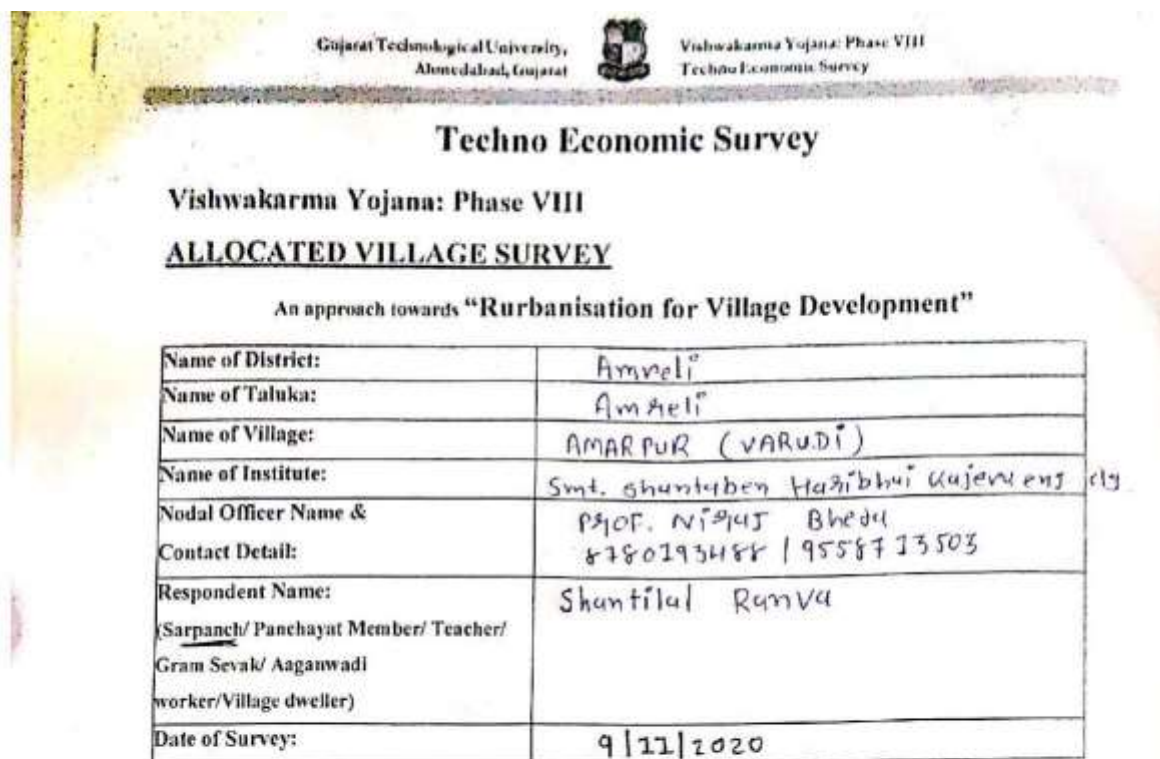 Gujarat Technological University,
Ahmedabad, Gujarat
Vishwakarma Yojana: Phase VIII
Techno Economic Survey
Techno Economic Survey
Vishwakarma Yojana: Phase VIII
ALLOCATED VILLAGE SURVEY
An approach towards “Rurbanisation for Village Development”
Name of District: Amreli
Name of Taluka: Amreli
Name of Village: AMARPUR (VARUDI)
Name of Institute: Smt. shantaben Haribhai
Nodal Officer Name & Prof. Niraj Bheda
Contact Detail: 8780193488 / 9558713503
Respondent Name: Shantilal Ranva
(Sarpanch/ Panchayat Member/ Teacher/
Gram Sevak/ Aaganwadi
worker/Village dweller)
Date of Survey: 9/11/2020